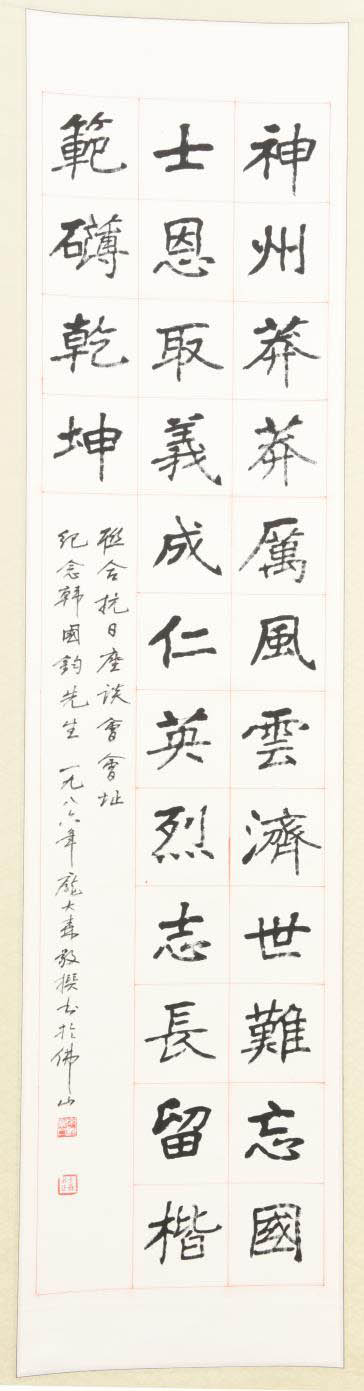 神州莽莽厲風雲濟世難忘國
士恩取義成仁英烈志長留楷
範礴乾坤
聯合抗日座談會會址
紀念韓國鈞先生 一九八六年龐大森敬撰書於佛山